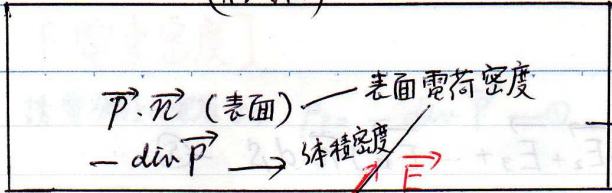 P⃗・n⃗ (表面) — 表面電荷密度
− div P⃗ → 体積密度
E⃗